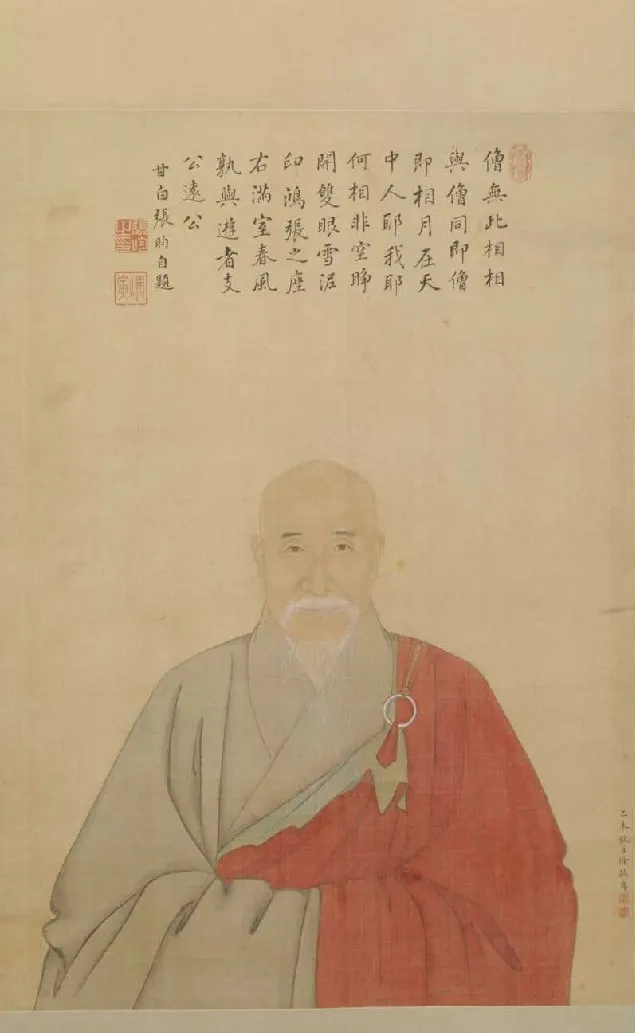 僧無此相相
與僧同即僧
即相月在天
中人耶我耶
何相非空睜
開雙眼雪泥
印鴻張之座
右滿室春風
孰與遊者支
公遠公
甘白張昀自題
未秋日徐